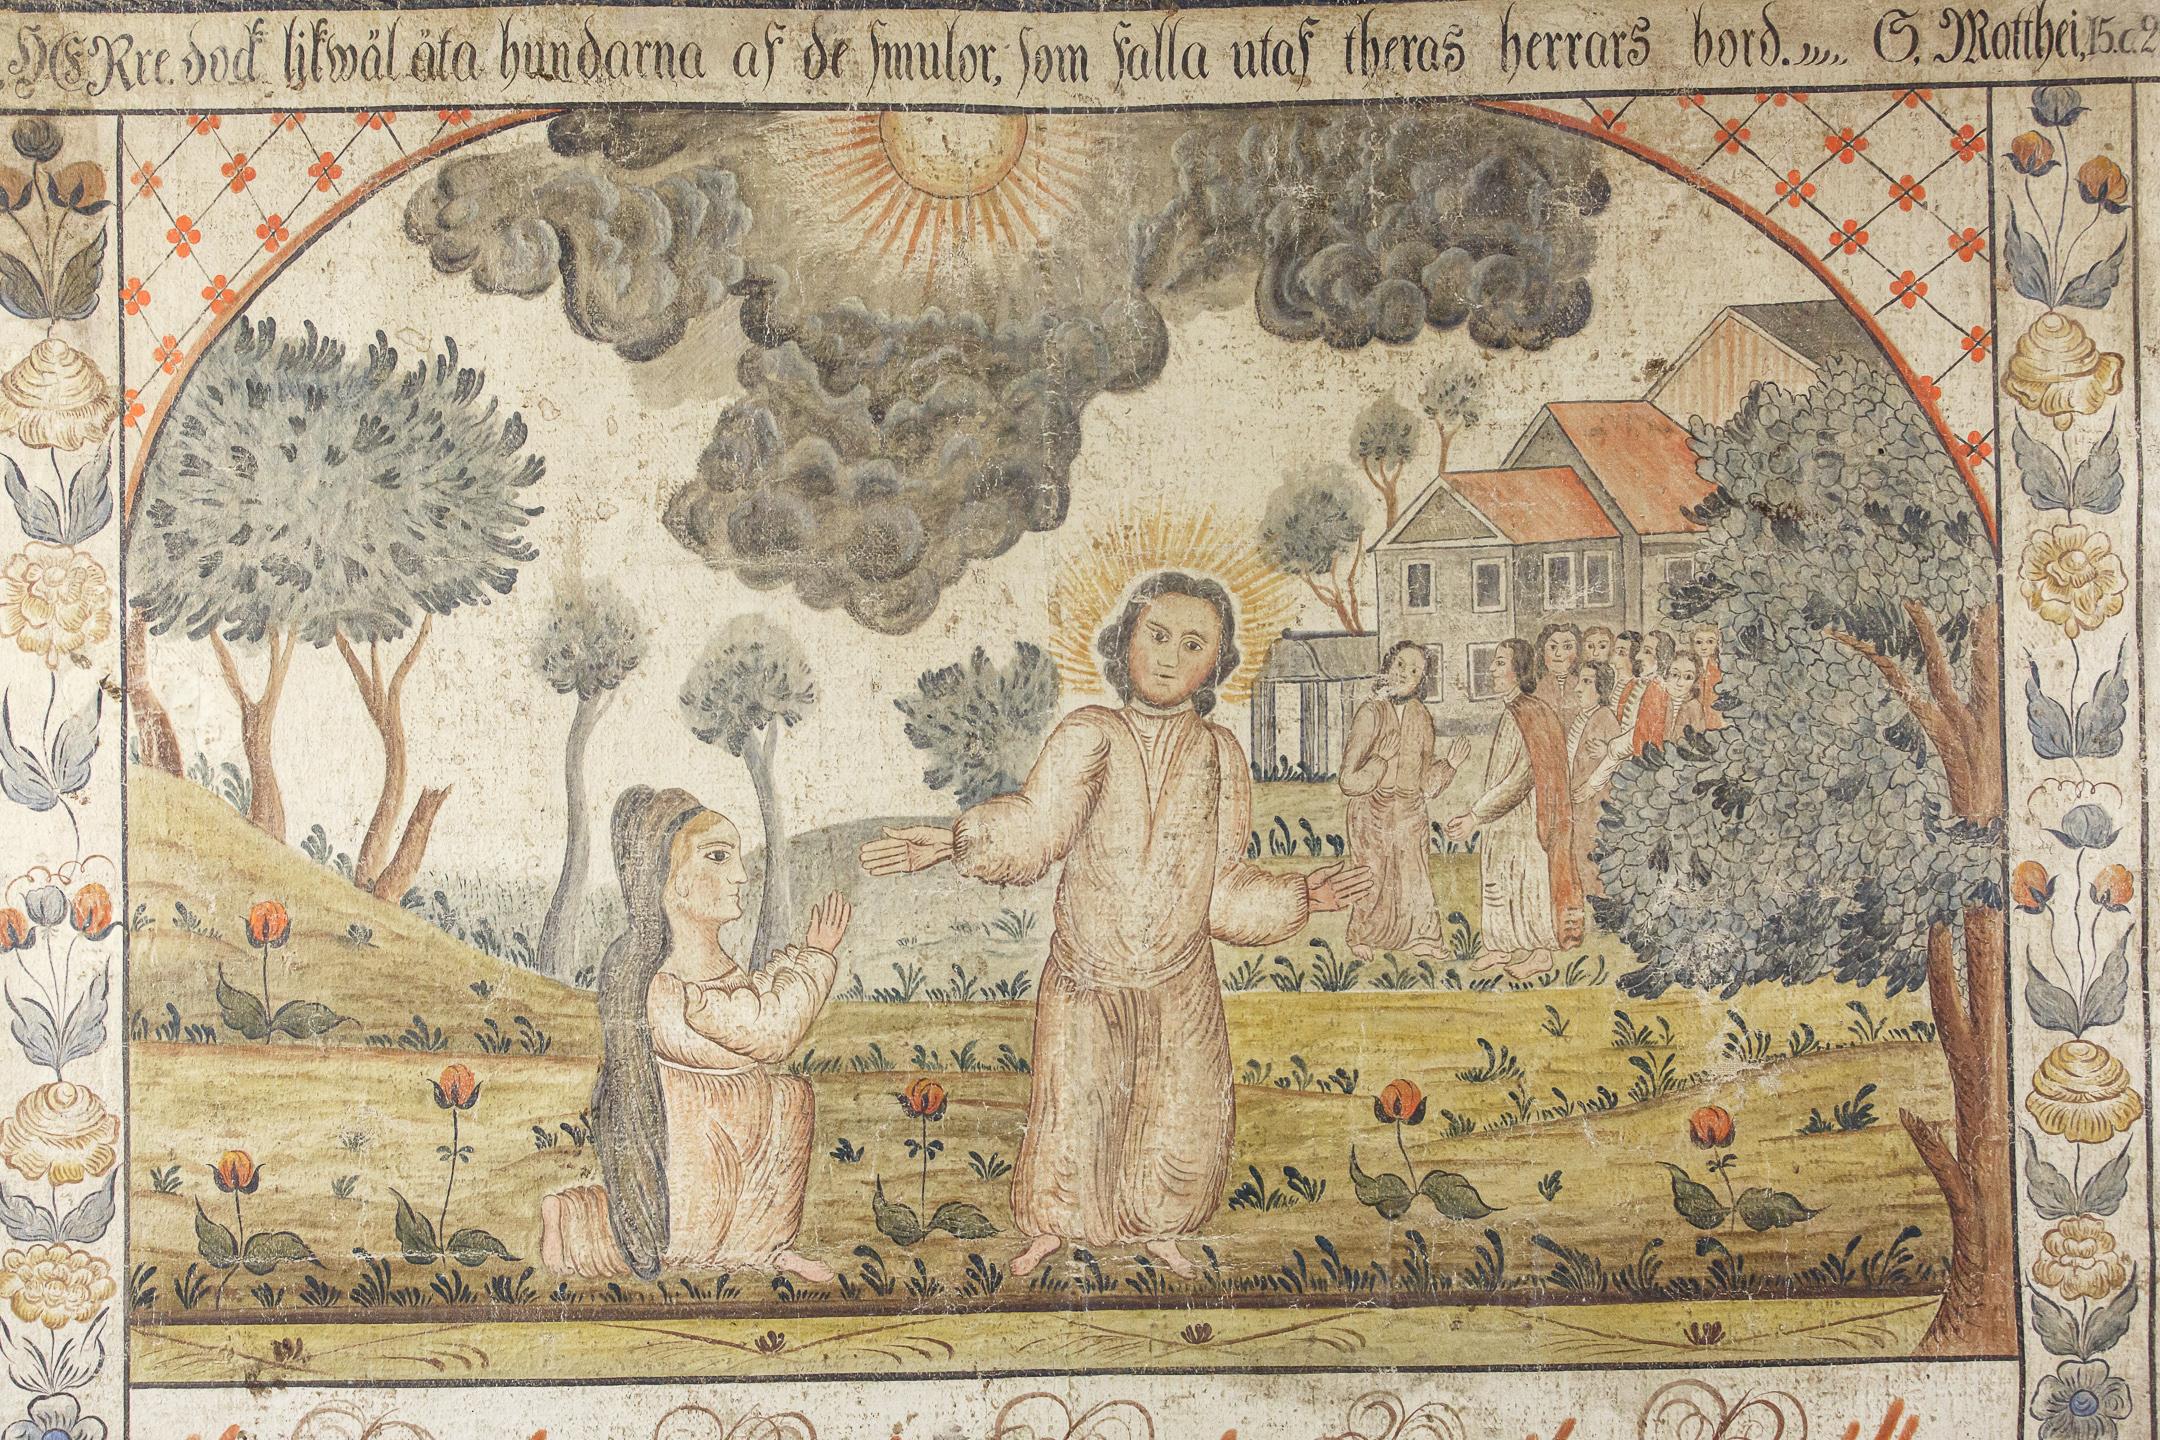 HERre. dock ljkwäl äta hundarna af de smulor, som falla utaf theras herrars bord. S. Matthei, 15.c.2